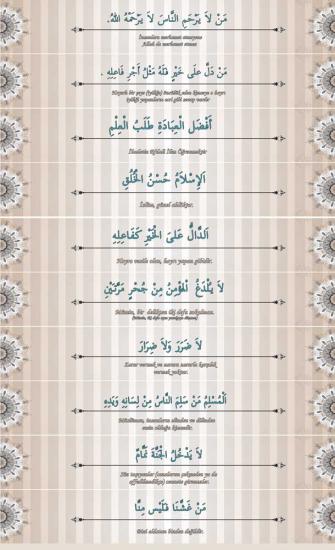 مَنْ لاَ يَرْحَمِ النَّاسَ لاَ يَرْحَمْهُ اللهُ.
İnsanlara merhamet etmeyene
Allah da merhamet etmez
مَنْ دَلَّ عَلَى خَيْرٍ فَلَهُ مِثْلُ أَجْرِ فَاعِلِهِ .
Hayırlı bir şeye (iyiliğe) öncülük eden kimseye o hayrı
iyiliği yapanların ecri gibi sevap vardır
أَفْضَلُ الْعِبَادَةِ طَلَبُ الْعِلْمِ
İbadetin Efdali İlim Öğrenmektir
اَلإِسْلاَمُ حُسْنُ الْخُلُقِ
İslâm, güzel ahlâktır.
اَلدَّالُّ عَلَى الْخَيْرِ كَفَاعِلِهِ
Hayra vesile olan, hayrı yapan gibidir.
لاَ يُلْدَغُ الْمُؤْمِنُ مِنْ جُحْرٍ مَرَّتَيْنِ
Mümin, bir delikten iki defa sokulmaz.
لاَ ضَرَرَ وَلاَ ضِرَارَ
Zarar vermek ve zarara zararla karşılık
vermek yoktur.
اَلْمُسْلِمُ مَنْ سَلِمَ النَّاسُ مِنْ لِسَانِهِ وَيَدِهِ
Müslüman, insanların elinden ve dilinden
emin olduğu kimsedir.
لاَ يَدْخُلُ الْجَنَّةَ نَمَّامٌ
Söz taşıyanlar cennete giremezler.
مَنْ غَشَّنَا فَلَيْسَ مِنَّا
Bizi aldatan bizden değildir.